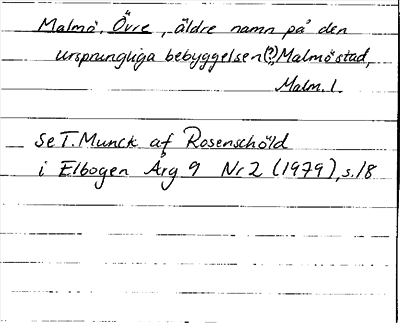 Malmö, Övre, äldre namn på den
ursprungliga bebyggelsen(?), Malmö stad,
Malm. l.
Se T. Munck af Rosenschöld
i Elbogen Årg 9 Nr 2 (1979), s. 18